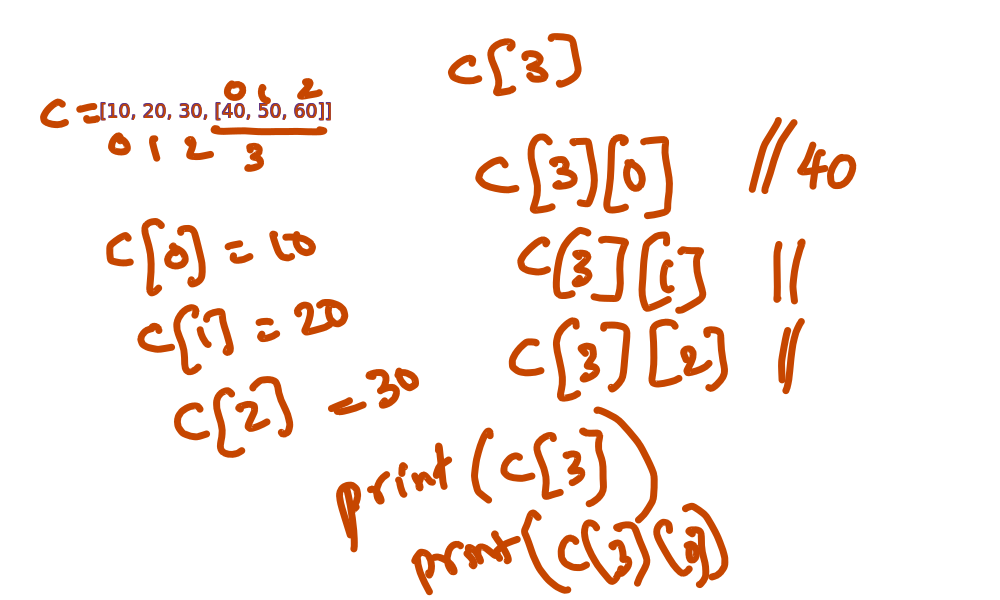 0 1 2
c = [10, 20, 30, [40, 50, 60]]
0 1 2 3
c[0] = 10
c[1] = 20
c[2] = 30
c[3]
c[3][0] // 40
c[3][1] //
c[3][2] //
print(c[3])
print(c[3][0])